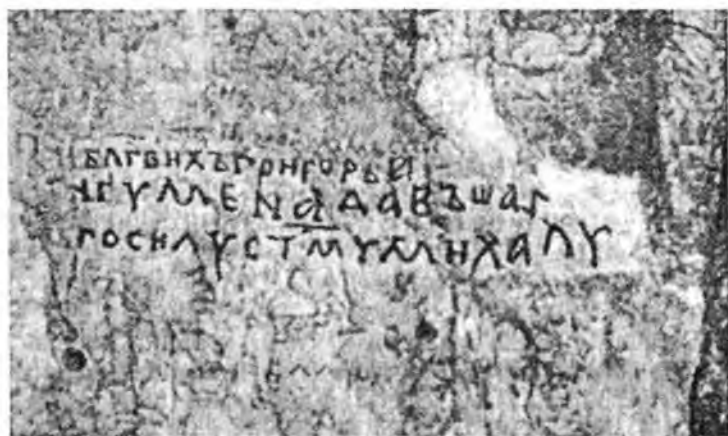 БЛГВИХЪГРИГОРЬИ
ІГУМЕНАДАВЪШАГ
ГОСИЛУСТМУМИХАЛУ